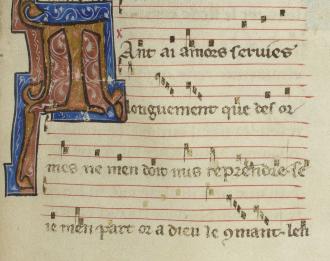 Tant ai amors seruies
longuement que des or
mes ne men doit nus reprendre. se
ie men part or a dieu le ꝯmant. len